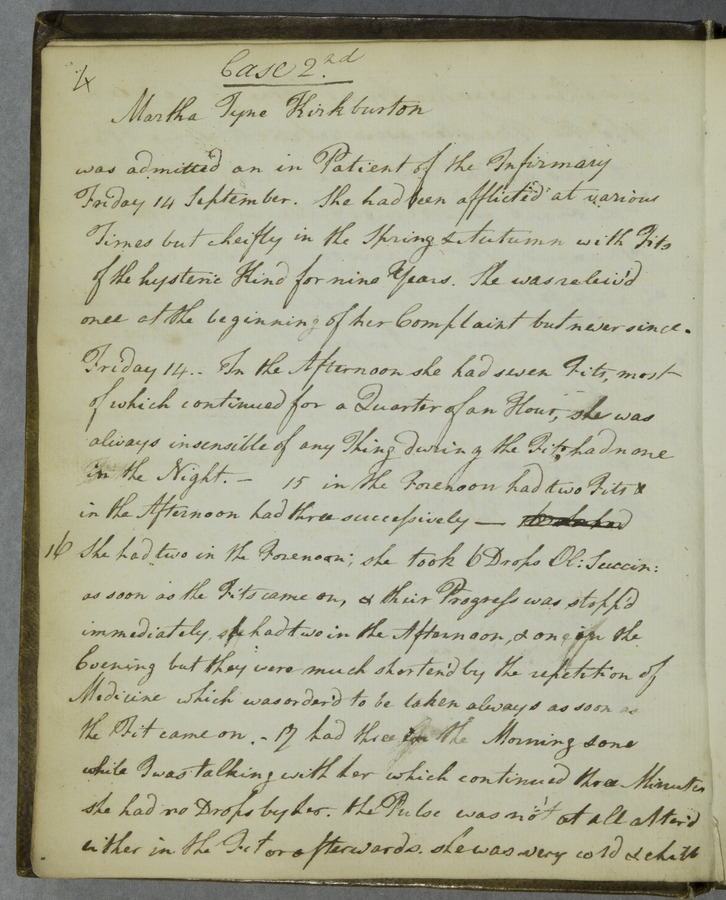 4
Case 2.nd
Martha Tyne Kirkburton
was admitted an in Patient of the Infirmary
Friday 14 September. She had been afflicted at various
Times but cheifly in the Spring & Autumn with Fits
of the hysteric Kind for nine Years. She was reliev'd
once at the beginning of her Complaint but never since.
Friday 14.- In the Afternoon she had seven Fits, most
of which continued for a Quarter of an Hour, she was
always insensible of any Thing during the Fits, had none
in the Night. - 15 in the Forenoon had two Fits &
in the Afternoon had three successively —
16 She had two in the Forenoon; she took 6 Drops Ol: Succin:
as soon as the Fits came on, & their Progress was stopp'd
immediately, she had two in the Afternoon, & one in the
Evening but they were much shortend by the repetition of
Medicine which was order'd to be taken always as soon as
the Fit came on. - 17 had three in the Morning & one
while I was talking with her which continued three Minutes
she had no Drops by her. the Pulse was not at all alter'd
either in the Fit or afterwards. she was very cold &